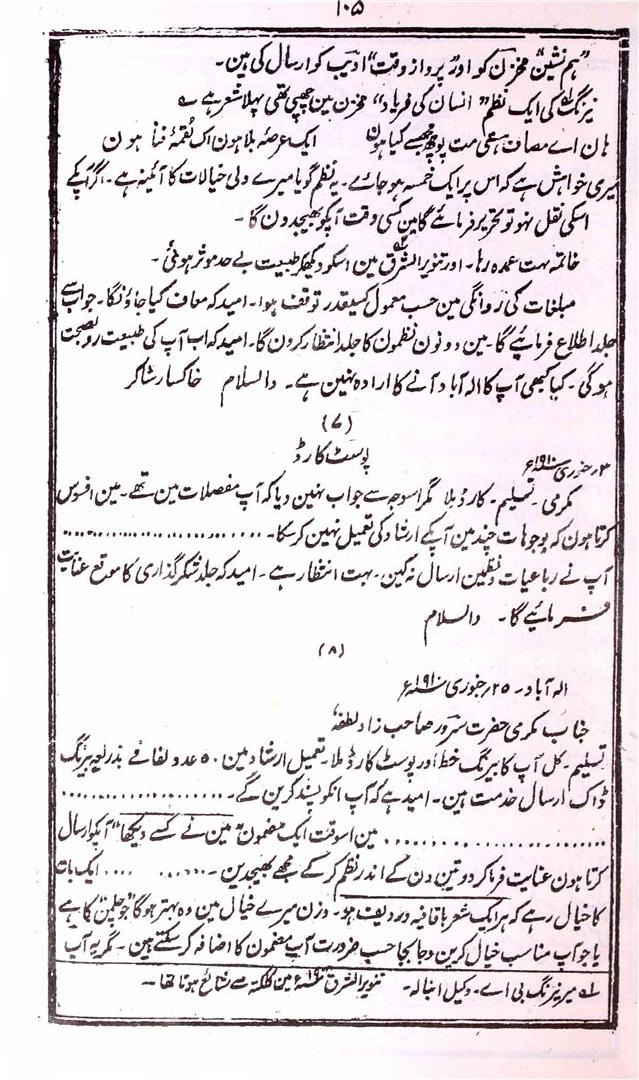 ۱۰۵
"ہم نشین" مخزن کو اور "پرواز وقت" ادیب کو ارسال کی ہین۔
نیرنگ کی ایک نظم "انسان کی فریاد" مخزن مین چھپی تھی پہلا شعر ہے
ہان اے مصاف ہستی مت پوچھ مجھسے کیا ہون ایک عرصہ بلا ہون اک لقمۂ فنا ہون
میری خواہش ہے کہ اس پر ایک خمسہ ہو جائے۔ یہ نظم گویا میرے دلی خیالات کا آئینہ ہے۔ اگر آپکے
اسکی نقل نہو تو تحریر فرمائے گا مین کسی وقت آپکو بھیجدون گا۔
خاتمہ بہت عمدہ رہا۔ اور تنویر الشرق مین اسکو دیکھکر طبیعت بے حد موثر ہوئی۔
مبلغات کی روانگی مین حسب معمول کسیقدر توقف ہوا۔ امید کہ معاف کیا جاؤنگا۔ جواب سے
جلد اطلاع فرمائیے گا۔ مین دونون نظمون کا جلد انتظار کرون گا۔ امید کہ اب آپ کی طبیعت روبصحت
ہوگی۔ کیا کبھی آپ کا الہ آباد آنے کا ارادہ نہین ہے۔ والسلام خاکسار شاکر
(۷)
پوسٹ کارڈ
۳؍ جنوری سنہ ۱۹۱۰ء
مکرمی۔ تسلیم۔ کارڈ ملا مگر اسوجہ سے جواب نہین دیا کہ آپ مفصلات مین تھے۔ مین افسوس
کرتا ہون کہ بوجوہات چند مین آپکے ارشاد کی تعمیل نہین کر سکا۔ ....................
آپ نے رباعیات و نظمین ارسال نہ کین۔ بہت انتظار ہے۔ امید کہ جلد شکر گذاری کا موقع عنایت
فرمائیے گا۔ والسلام
(۸)
الہ آباد۔ ۲۵؍ جنوری سنہ ۱۹۱۰ء
جناب مکرمی حضرت سرور صاحب زاد لطفہٗ
تسلیم۔ کل آپ کا بیرنگ خط اور پوسٹ کارڈ ملا۔ تعمیل ارشاد مین ۵۰ عدد لفافے بذریعہ بیرنگ
ڈاک ارسال خدمت ہین۔ امید ہے کہ آپ انکو پسند کرین گے۔ ....................
.................... مین اسوقت ایک مضمون "مین نے کسے دیکھا" آپکو ارسال
کرتا ہون عنایت فرما کر دو تین دن کے اندر نظم کر کے مجھے بھیجدین۔ .......... ایک بات
کا خیال رہے کہ ہر ایک شعر با قافیہ و ردیف ہو۔ وزن میرے خیال مین وہ بہتر ہوگا "جو چلمن کا ہے
یا جو آپ مناسب خیال کرین وجابجا حسب ضرورت آپ مضمون کا اضافہ کر سکتے ہین۔ مگر یہ آپ
لہ میر نیرنگ بی اے۔ وکیل انبالہ۔ تنویر الشرق مین کلکتہ سے شائع ہوتا تھا۔